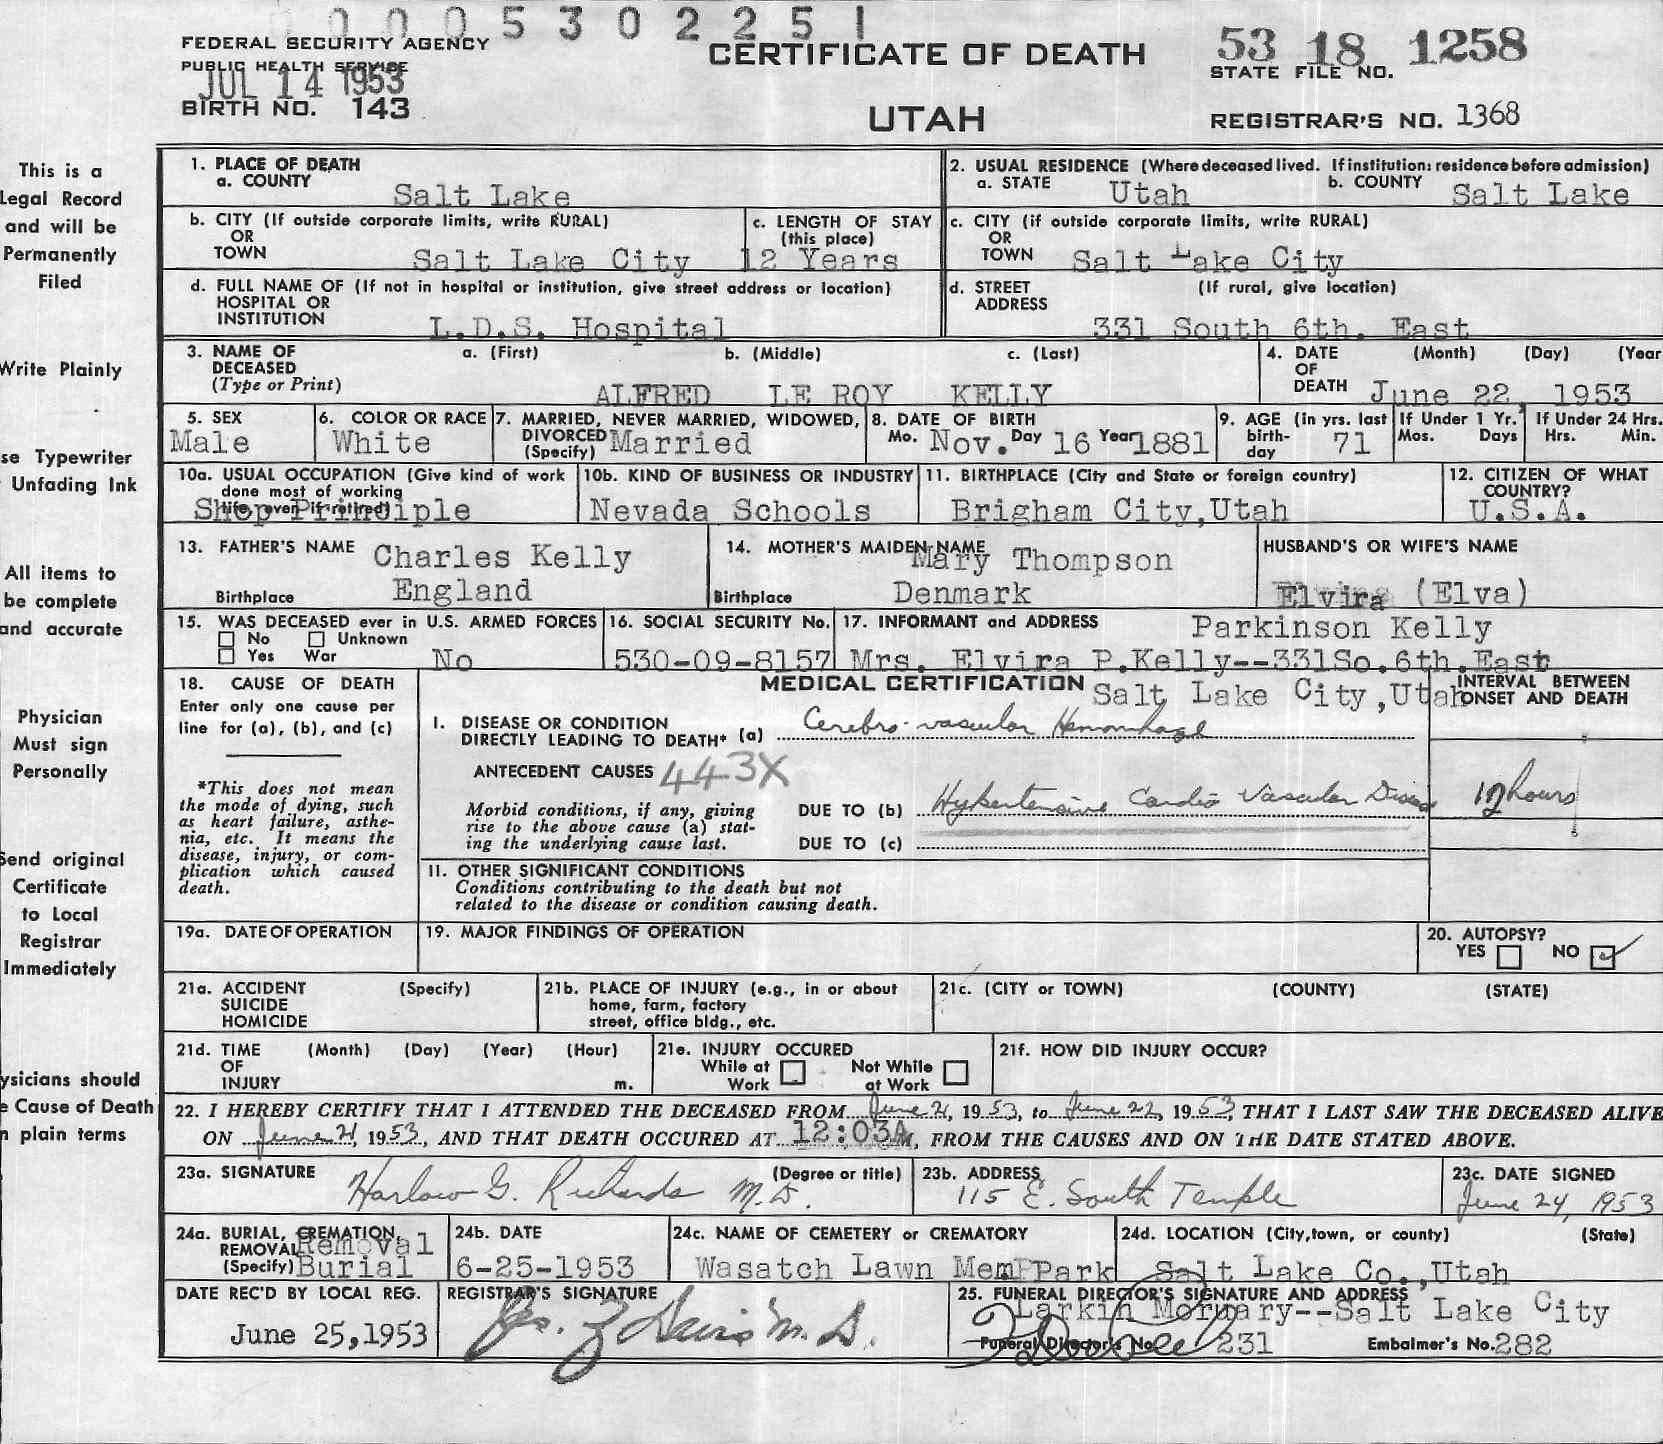 0 0 0 5 3 0 2 2 5 1
FEDERAL SECURITY AGENCY
PUBLIC HEALTH SERVICE
JUL 14 1953
BIRTH NO. 143
CERTIFICATE OF DEATH
UTAH
53 18 1258
STATE FILE NO.
REGISTRAR'S NO. 1368
This is a
Legal Record
and will be
Permanently
Filed
Write Plainly
se Typewriter
Unfading Ink
All items to
be complete
and accurate
Physician
Must sign
Personally
Send original
Certificate
to Local
Registrar
Immediately
ysicians should
e Cause of Death
n plain terms
1. PLACE OF DEATH
a. COUNTY Salt Lake
2. USUAL RESIDENCE (Where deceased lived. If institution: residence before admission)
a. STATE Utah b. COUNTY Salt Lake
b. CITY (If outside corporate limits, write RURAL)
OR
TOWN Salt Lake City
c. LENGTH OF STAY
(this place)
12 Years
c. CITY (if outside corporate limits, write RURAL)
OR
TOWN Salt Lake City
d. FULL NAME OF (If not in hospital or institution, give street address or location)
HOSPITAL OR
INSTITUTION L.D.S. Hospital
d. STREET (If rural, give location)
ADDRESS
331 South 6th. East
3. NAME OF a. (First) b. (Middle) c. (Last)
DECEASED
(Type or Print) ALFRED LE ROY KELLY
4. DATE (Month) (Day) (Year
OF
DEATH June 22, 1953
5. SEX
Male
6. COLOR OR RACE
White
7. MARRIED, NEVER MARRIED, WIDOWED,
DIVORCED
(Specify) Married
8. DATE OF BIRTH
Mo. Nov. Day 16 Year 1881
9. AGE (in yrs. last
birth-
day 71
If Under 1 Yr.
Mos. Days
If Under 24 Hrs.
Hrs. Min.
10a. USUAL OCCUPATION (Give kind of work
done most of working
life, even if retired)
Shop Principle
10b. KIND OF BUSINESS OR INDUSTRY
Nevada Schools
11. BIRTHPLACE (City and State or foreign country)
Brigham City,Utah
12. CITIZEN OF WHAT
COUNTRY?
U.S.A.
13. FATHER'S NAME Charles Kelly
Birthplace England
14. MOTHER'S MAIDEN NAME Mary Thompson
Birthplace Denmark
HUSBAND'S OR WIFE'S NAME
Elvira (Elva)
15. WAS DECEASED ever in U.S. ARMED FORCES
No Unknown
Yes War No
16. SOCIAL SECURITY No.
530-09-8157
17. INFORMANT and ADDRESS Parkinson Kelly
Mrs. Elvira P.Kelly--331So.6th.East
Salt Lake City,Utah
18. CAUSE OF DEATH
Enter only one cause per
line for (a), (b), and (c)
*This does not mean
the mode of dying, such
as heart failure, asthe-
nia, etc. It means the
disease, injury, or com-
plication which caused
death.
MEDICAL CERTIFICATION
INTERVAL BETWEEN
ONSET AND DEATH
I. DISEASE OR CONDITION
DIRECTLY LEADING TO DEATH* (a) Cerebro-vascular Hemorrhage
ANTECEDENT CAUSES 443X
Morbid conditions, if any, giving
rise to the above cause (a) stat-
ing the underlying cause last.
DUE TO (b) Hypertensive Cardio Vascular Disease 12 hours
DUE TO (c)
II. OTHER SIGNIFICANT CONDITIONS
Conditions contributing to the death but not
related to the disease or condition causing death.
19a. DATE OF OPERATION
19. MAJOR FINDINGS OF OPERATION
20. AUTOPSY?
YES NO
21a. ACCIDENT (Specify)
SUICIDE
HOMICIDE
21b. PLACE OF INJURY (e.g., in or about
home, farm, factory
street, office bldg., etc.
21c. (CITY or TOWN) (COUNTY) (STATE)
21d. TIME (Month) (Day) (Year) (Hour)
OF
INJURY m.
21e. INJURY OCCURED
While at Not While
Work at Work
21f. HOW DID INJURY OCCUR?
22. I HEREBY CERTIFY THAT I ATTENDED THE DECEASED FROM June 21, 1953, to June 22, 1953, THAT I LAST SAW THE DECEASED ALIVE
ON June 21, 1953, AND THAT DEATH OCCURED AT 12:03A M, FROM THE CAUSES AND ON THE DATE STATED ABOVE.
23a. SIGNATURE (Degree or title)
Harlow G. Richards M.D.
23b. ADDRESS
115 E. South Temple
23c. DATE SIGNED
June 24, 1953
24a. BURIAL, CREMATION,
REMOVAL Removal
(Specify) Burial
24b. DATE
6-25-1953
24c. NAME OF CEMETERY or CREMATORY
Wasatch Lawn Mem Park
24d. LOCATION (City,town, or county) (State)
Salt Lake Co.,Utah
DATE REC'D BY LOCAL REG.
June 25,1953
REGISTRAR'S SIGNATURE
25. FUNERAL DIRECTOR'S SIGNATURE AND ADDRESS
Larkin Moruary--Salt Lake City
Funeral Director's No. 231 Embalmer's No. 282